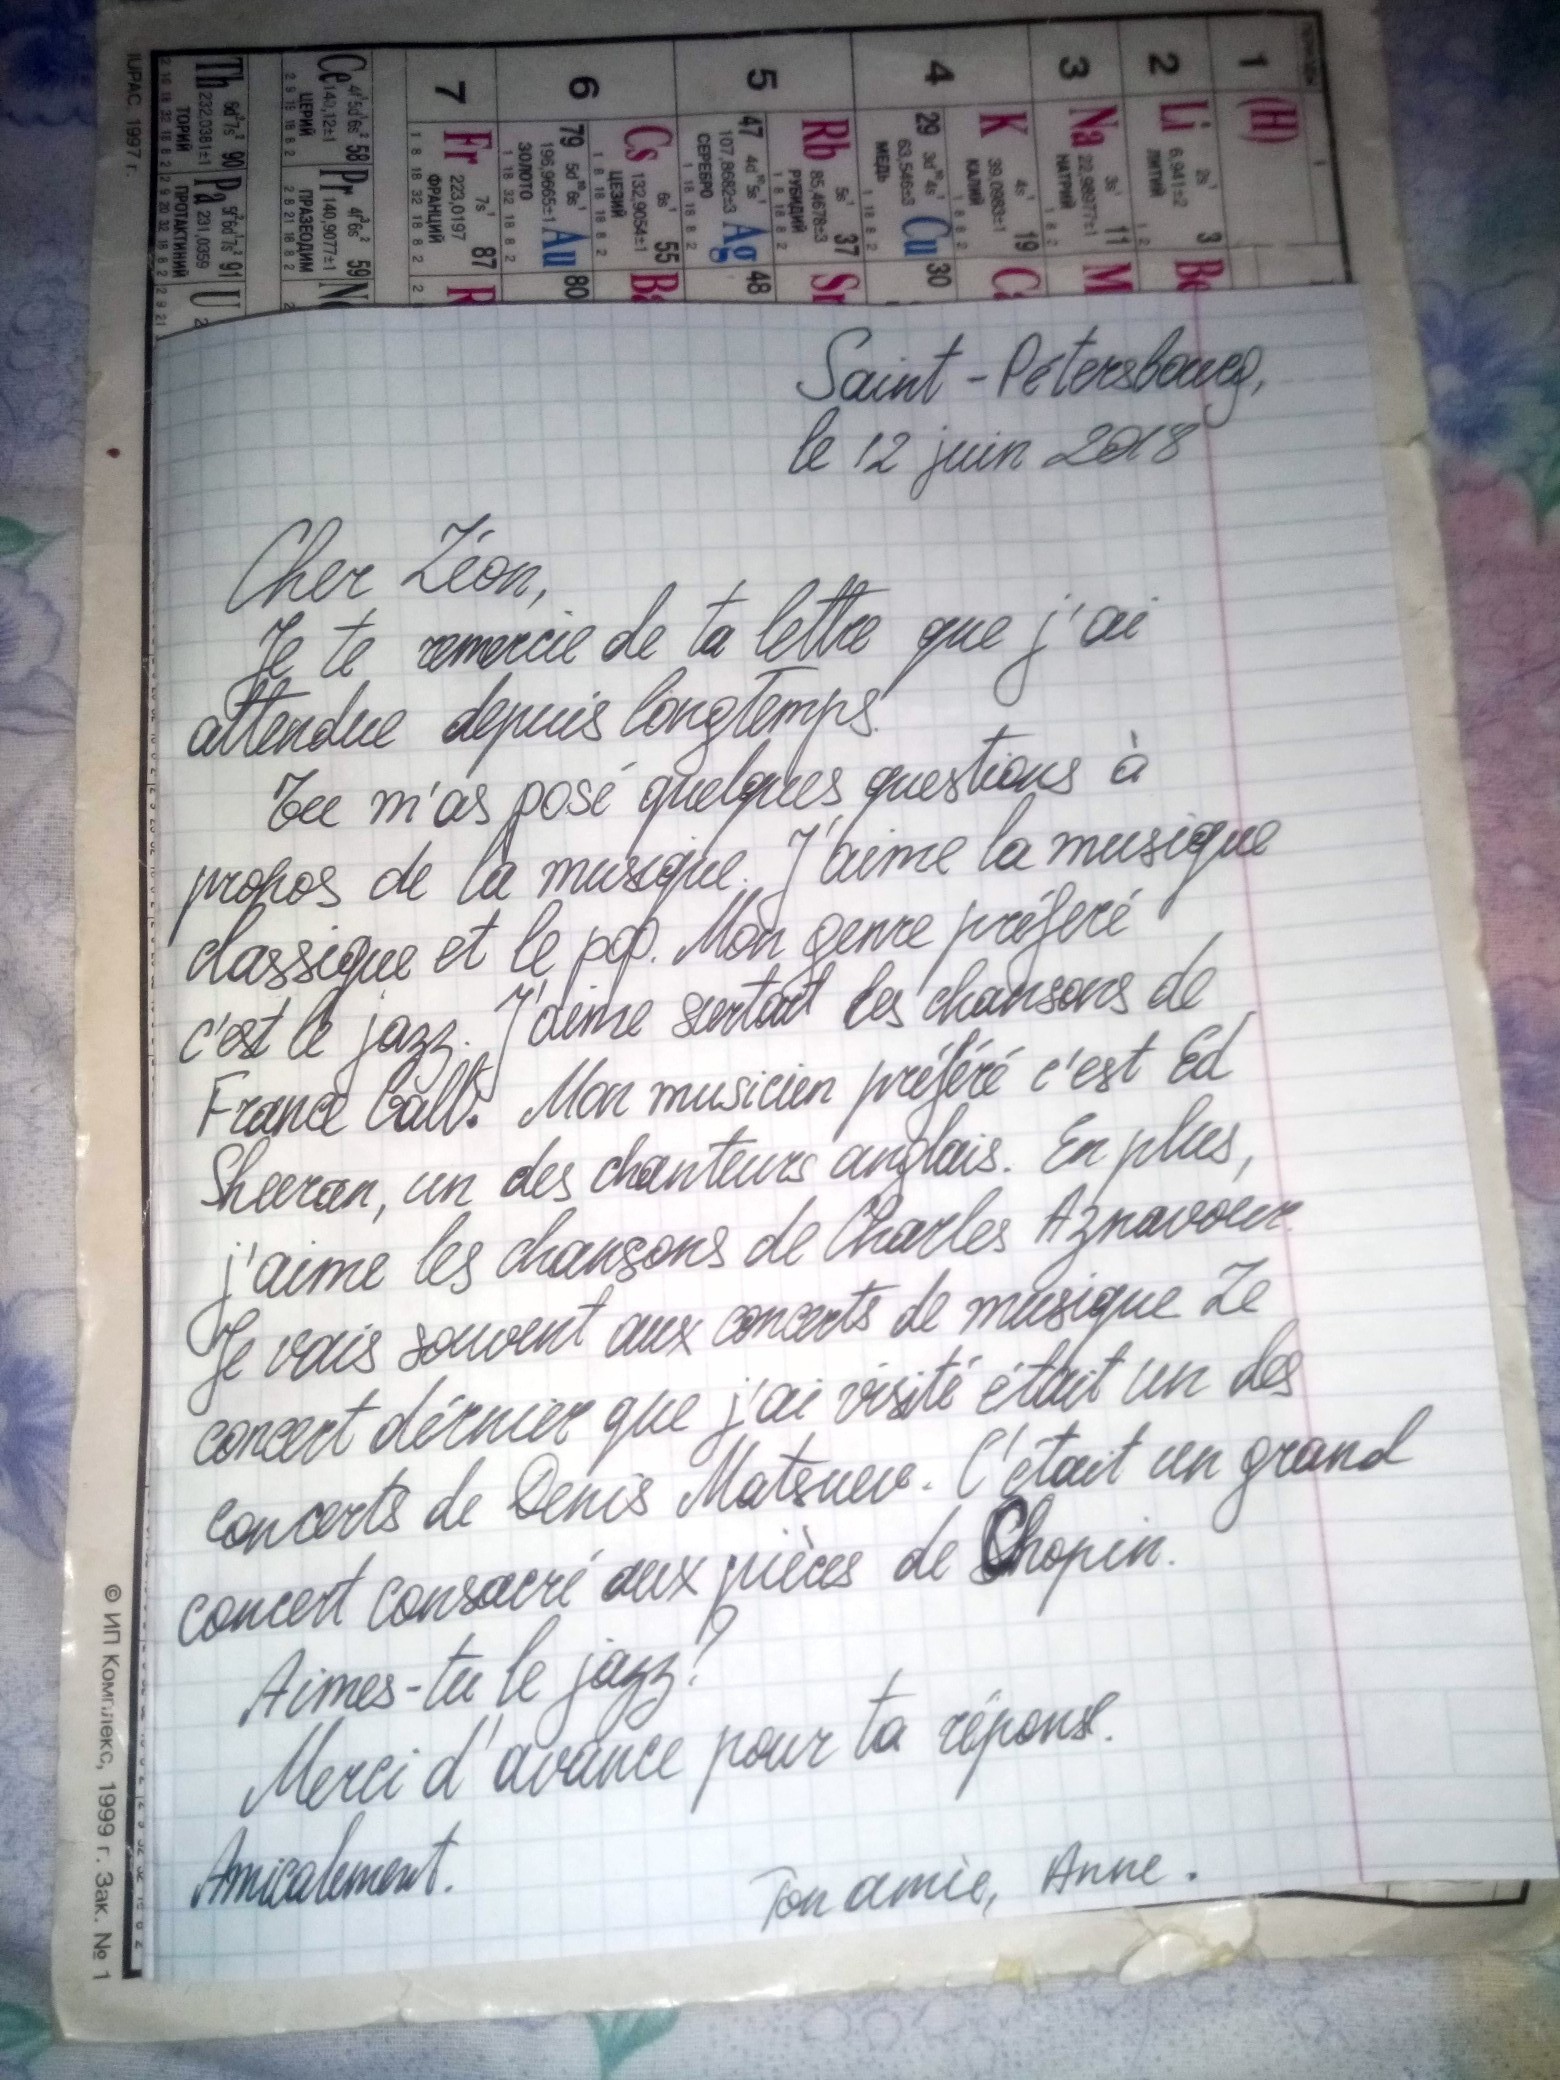 Saint-Pétersbourg,
le 12 juin 2018
Cher Léon,
Je te remercie de ta lettre que j'ai
attendue depuis longtemps.
Tu m'as posé quelques questions à
propos de la musique. J'aime la musique
classique et le pop. Mon genre préferé
c'est le jazz. J'aime surtout les chansons de
France Gall. Mon musicien préféré c'est Ed
Sheeran, un des chanteurs anglais. En plus,
j'aime les chansons de Charles Aznavour.
Je vais souvent aux concerts de musique Le
concert dérnier que j'ai visité était un des
concerts de Denis Matsuev. C'était un grand
concert consacré aux pièces de Chopin.
Aimes-tu le jazz?
Merci d'avance pour ta réponse.
Amicalement.
Ton amie, Anne.
1 2 3 4 5 6 7
(H)
Li 3 6,941±2 2s¹ ЛИТИЙ Be
Na 11 22,98977±1 3s¹ НАТРИЙ M
K 19 39,0983±1 4s¹ КАЛИЙ C
29 Cu 63,546±3 3d¹⁰4s¹ МЕДЬ 30
Rb 37 85,4678±3 5s¹ РУБИДИЙ Sr
47 Ag 107,8682±3 4d¹⁰5s¹ СЕРЕБРО 48
Cs 55 132,9054±1 6s¹ ЦЕЗИЙ Ba
79 Au 196,9665±1 5d¹⁰6s¹ ЗОЛОТО 80
Fr 87 223,0197 7s¹ ФРАНЦИЙ R
Ce 58 140,12±1 4f¹5d¹6s² ЦЕРИЙ Pr 59 140,9077±1 4f³6s² ПРАЗЕОДИМ N
Th 90 232,0381±1 6d²7s² ТОРИЙ Pa 91 231,0359 5f²6d¹7s² ПРОТАКТИНИЙ U
IUPAC 1997 г.
© ИП Комплекс, 1999 г. Зак. № 1